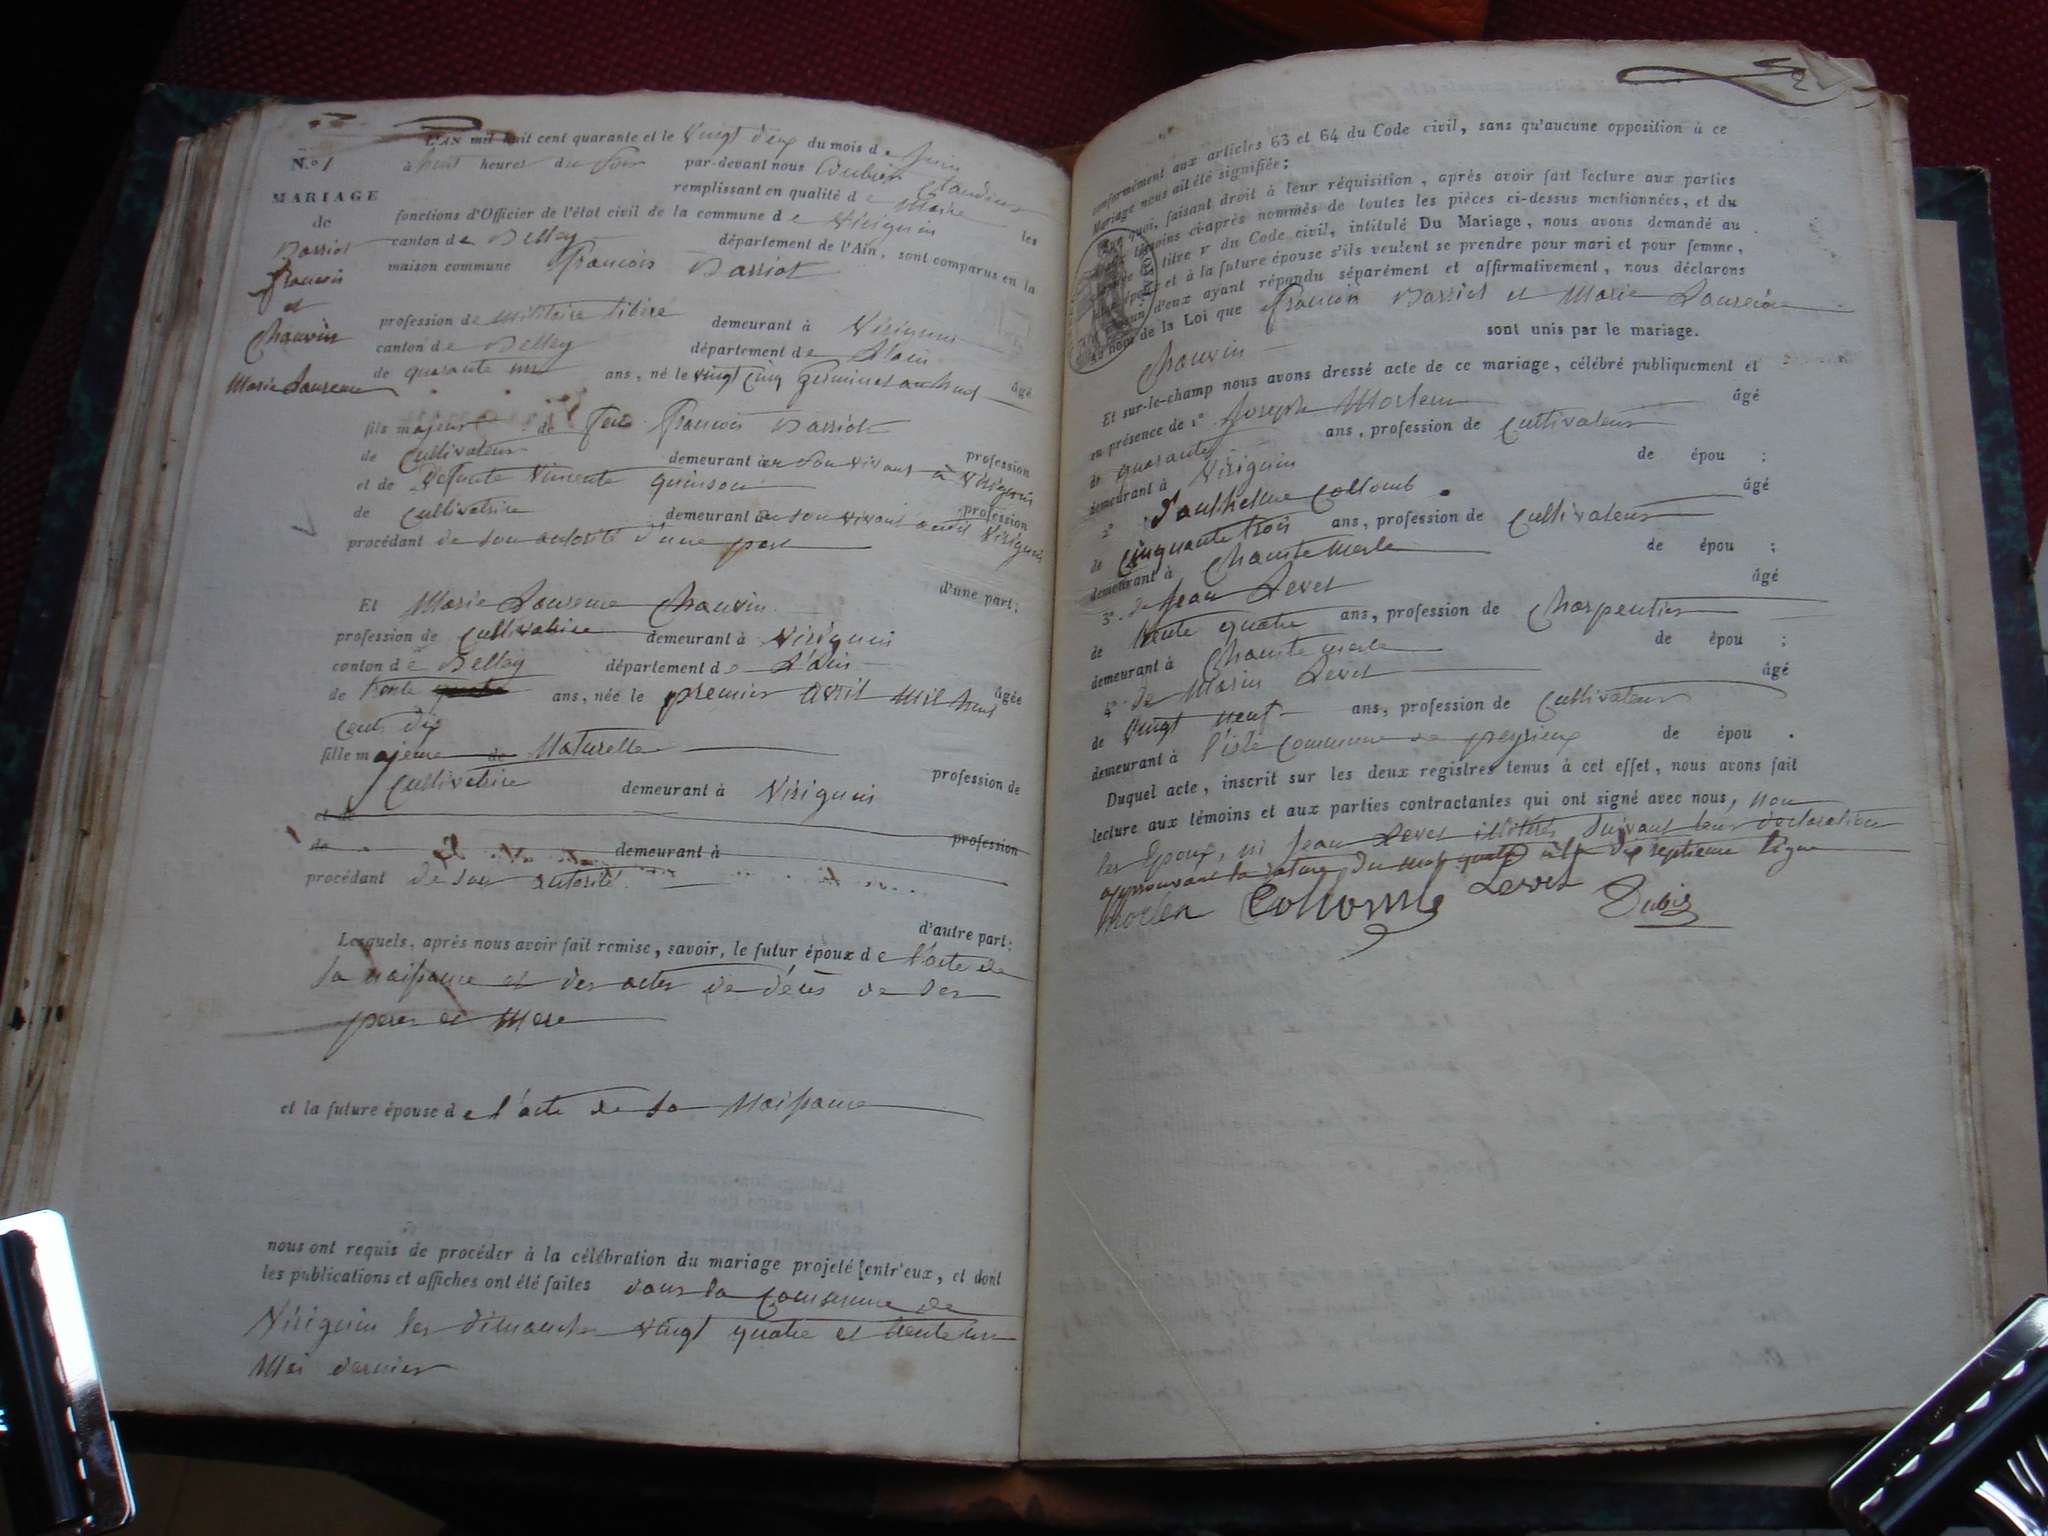 N.º 1
MARIAGE
de
Barriot
françois
et
Chauvin
Marie Laurence
L'AN mil huit cent quarante et le Vingt deux du mois de juin
à huit heures du soir par-devant nous Dubis Claudius
remplissant en qualité de Maire les
fonctions d'Officier de l'état civil de la commune de Virignin
canton de Belley département de l'Ain, sont comparus en la
maison commune françois Barriot
profession de militaire libéré demeurant à Virignin
canton de Belley département de L'ain
de quarante ans, né le vingt cinq germinal an huit âgé
fils majeur de feu françois Barriot
de Cultivateur demeurant à en son vivant à Virignin profession
et de Defunte Vincente quinson
de Cultivatrice demeurant à en son vivant Virignin profession
procédant de son autorité d'une part
d'une part;
Et Marie Laurence Chauvin
profession de Cultivatrice demeurant à Virignin
canton de Belley département de L'ain
de trente ans, née le premier avril mil huit âgée
cents dix
fille majeure de Naturelle
Cultivatrice demeurant à Virignin profession de
et de
de demeurant à profession
procédant de son autorité
d'autre part:
Lesquels, après nous avoir fait remise, savoir, le futur époux de l'acte de
sa naissance et des actes de décès de ses
peres et Mere
et la future épouse de l'acte de sa Naissance
nous ont requis de procéder à la célébration du mariage projeté entr'eux, et dont
les publications et affiches ont été faites dans la Commune de
Virignin les dimanches vingt quatre et trente un
Mai dernier
conformément aux articles 63 et 64 du Code civil, sans qu'aucune opposition à ce
Mariage nous ait été signifiée;
quoi, faisant droit à leur réquisition, après avoir fait lecture aux parties
témoins ci-après nommés de toutes les pièces ci-dessus mentionnées, et du
titre V du Code civil, intitulé Du Mariage, nous avons demandé au
et à la future épouse s'ils veulent se prendre pour mari et pour femme,
d'eux ayant répondu séparément et affirmativement, nous déclarons
au nom de la Loi que françois Barriot et Marie Laurence
Chauvin sont unis par le mariage.
Et sur-le-champ nous avons dressé acte de ce mariage, célébré publiquement et
en présence de 1º Joseph Morlen âgé
de quarante ans, profession de Cultivateur
demeurant à Virignin de épou ;
2º D'anthelme Collomb âgé
de Cinquante trois ans, profession de Cultivateur
demeurant à Chantemerle de épou ;
3º de Jean Levet âgé
de trente quatre ans, profession de Charpentier
demeurant à Chantemerle de épou ;
4º de Marin Levet âgé
de Vingt neuf ans, profession de Cultivateur
demeurant à l'isle Commune de peyrieux de épou .
Duquel acte, inscrit sur les deux registres tenus à cet effet, nous avons fait
lecture aux témoins et aux parties contractantes qui ont signé avec nous, non
les Epoux, ni Jean Levet illitérés suivant leur declaration
approuvant la rature du mot quatre à la dix septieme ligne
Morlen Collomb Levet Dubis